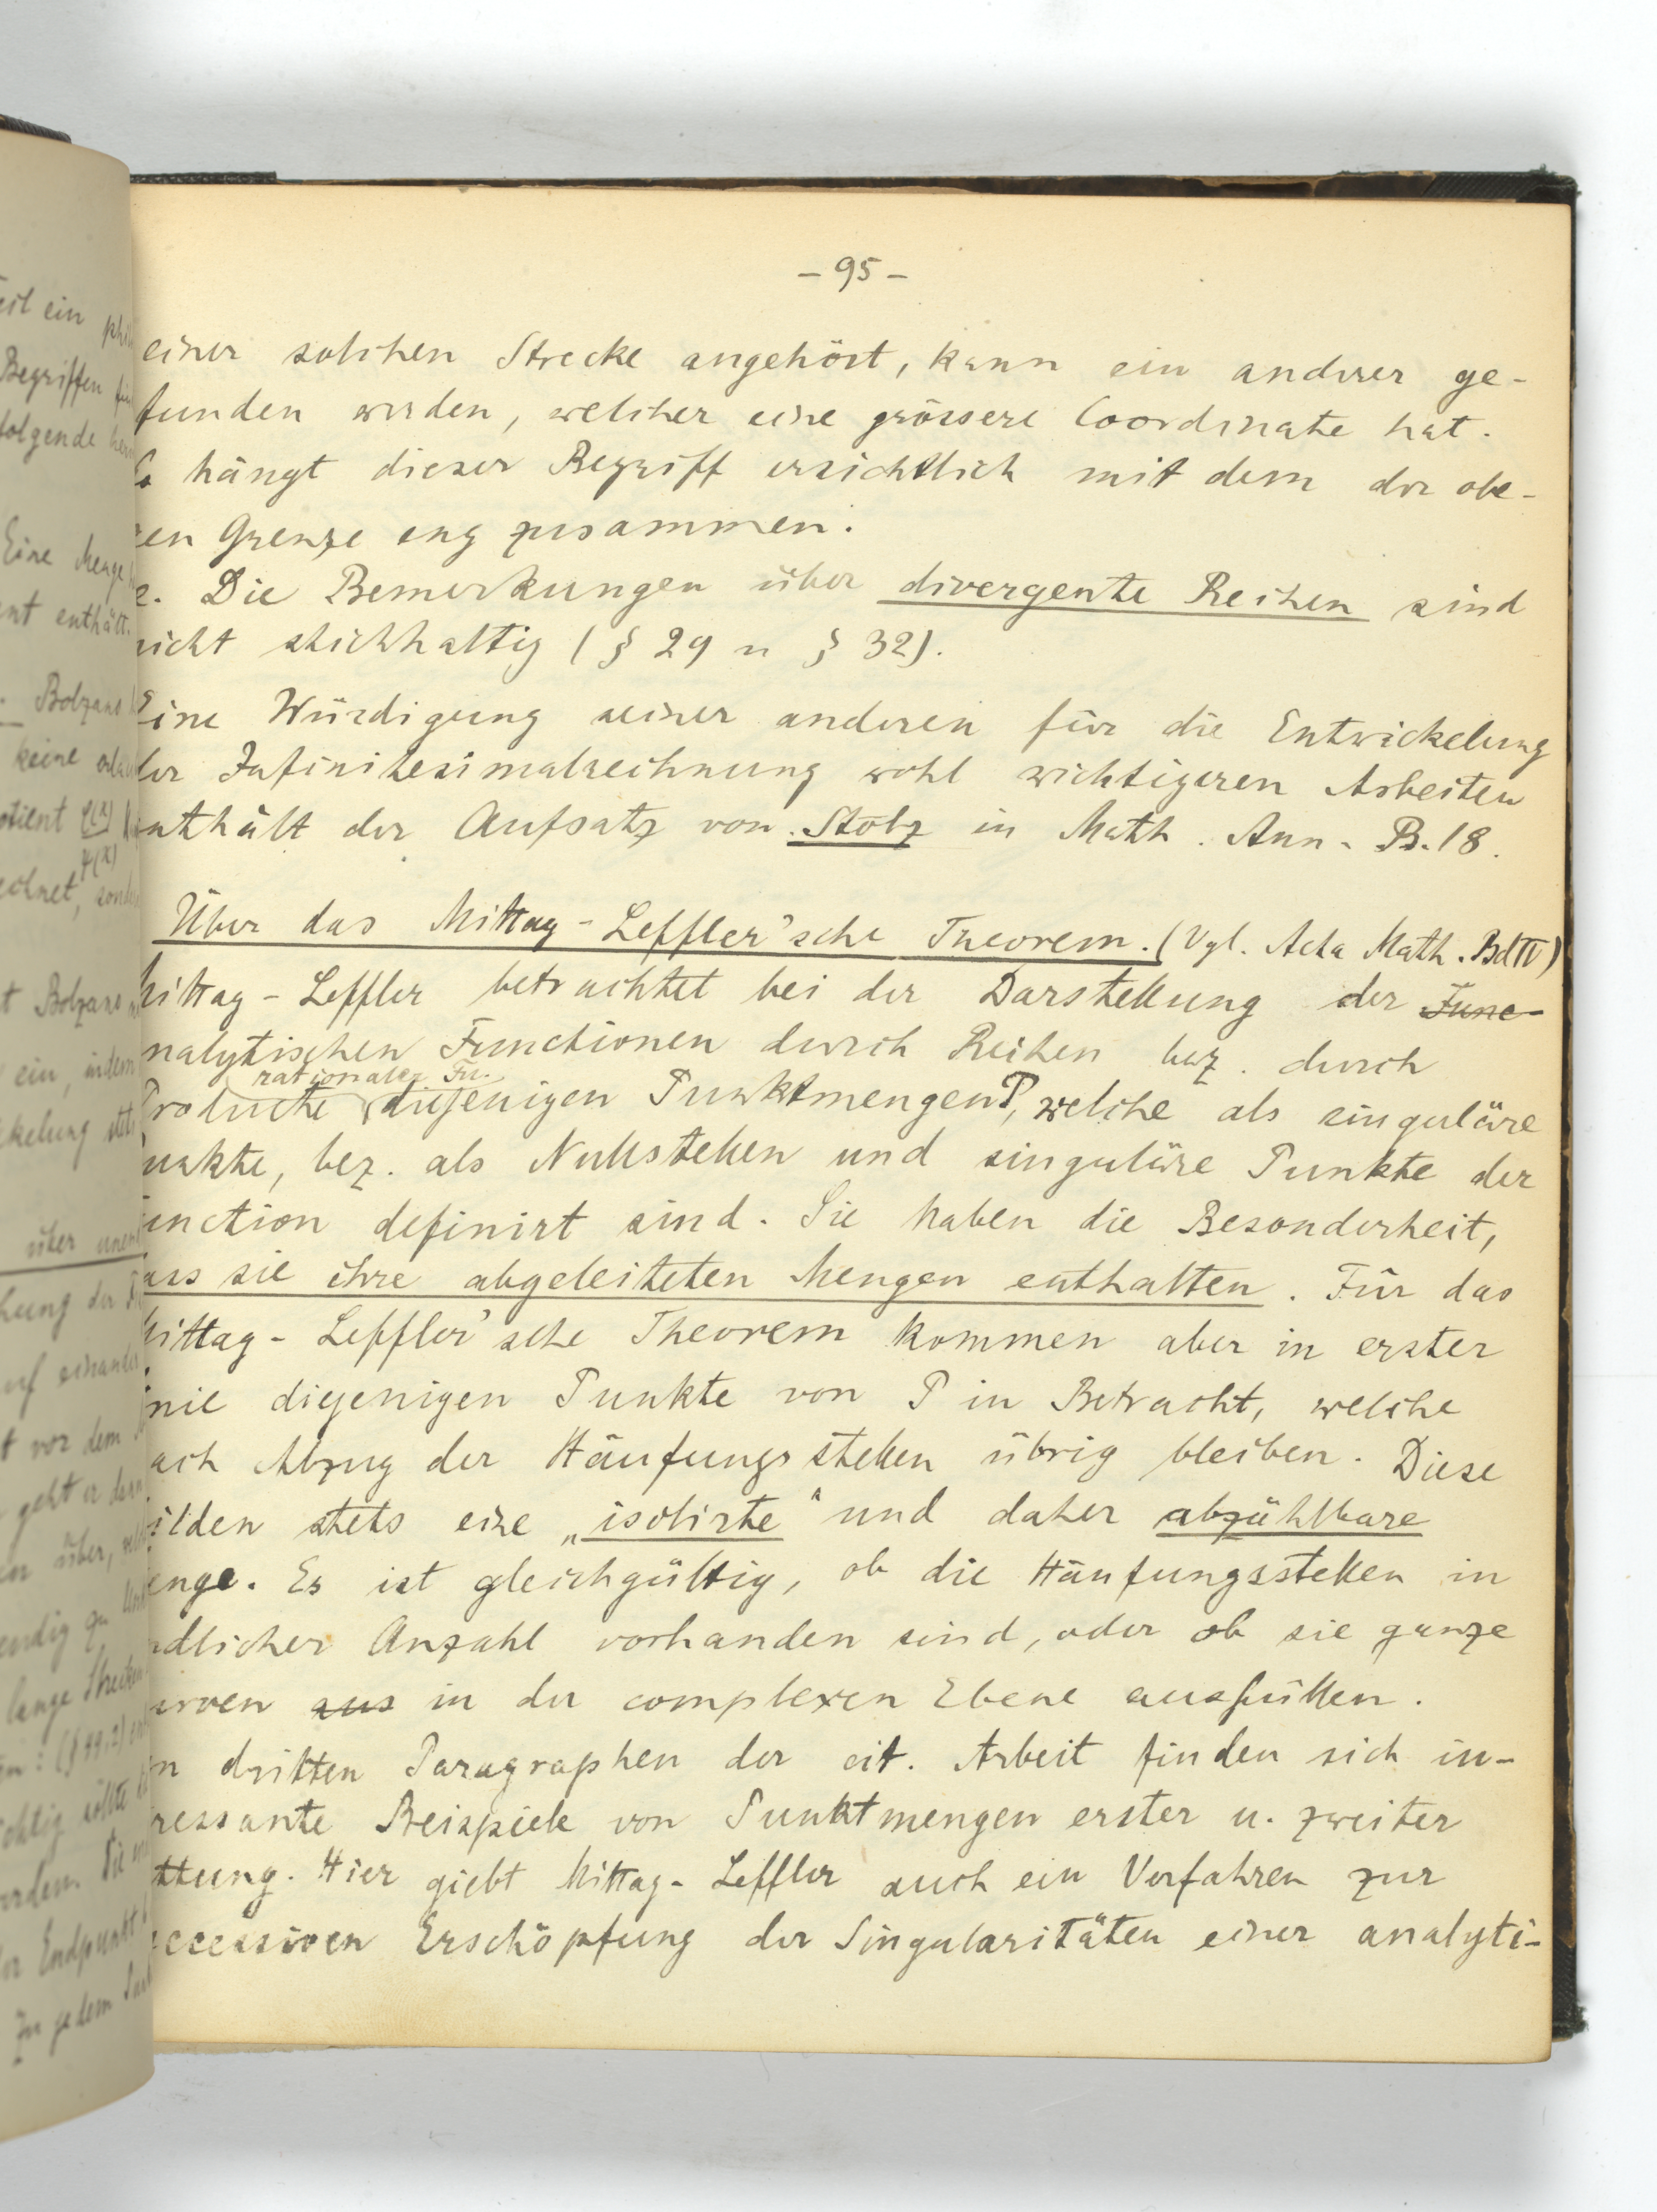 - 95 -
einer solchen Strecke angehört, kann ein anderer ge-
funden werden, welcher eine grössere Coordinate hat.
Es hängt dieser Begriff ersichtlich mit dem der obe-
ren Grenze eng zusammen.
e. Die Bemerkungen über divergente Reihen sind
nicht stichhaltig (§ 29 u § 32).
Eine Würdigung seiner anderen für die Entwickelung
der Infinitesimalrechnung wohl wichtigeren Arbeiten
enthält der Aufsatz von Stolz in Math. Ann. B. 18.
Über das Mittag-Leffler'sche Theorem. (Vgl. Acta Math. Bd IV)
Mittag-Leffler betrachtet bei der Darstellung der Func-
nalytischen Functionen durch Reihen bez. durch
rationaler Fu.
Producte diejenigen Punktmengen P, welche als singuläre
unkte, bez. als Nullstellen und singuläre Punkte der
unction definirt sind. Sie haben die Besonderheit,
ass sie ihre abgeleiteten Mengen enthalten. Für das
Mittag-Leffler'sche Theorem kommen aber in erster
inie diejenigen Punkte von P in Betracht, welche
ach Abzug der Häufungsstellen übrig bleiben. Diese
ilden stets eine „isolirte“ und daher abzählbare
enge. Es ist gleichgültig, ob die Häufungsstellen in
ndlicher Anzahl vorhanden sind, oder ob sie ganze
urven aus in der complexen Ebene ausfüllen.
m dritten Paragraphen der cit. Arbeit finden sich in-
ressante Beispiele von Punktmengen erster u. zweiter
ttung. Hier giebt Mittag-Leffler auch ein Verfahren zur
ccessiven Erschöpfung der Singularitäten einer analyti-